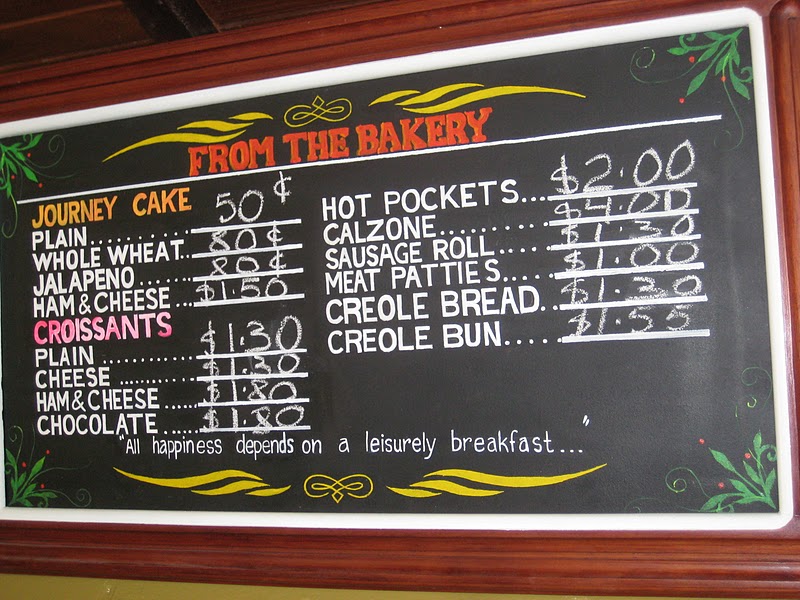 FROM THE BAKERY
JOURNEY CAKE
PLAIN.......... 50¢
WHOLE WHEAT.. 80¢
JALAPENO..... 80¢
HAM & CHEESE ... $1.50
CROISSANTS
PLAIN ............ $1.30
CHEESE ......... $1.30
HAM & CHEESE ..... $1.80
CHOCOLATE ..... $1.80
HOT POCKETS.... $2.00
CALZONE........... $4.00
SAUSAGE ROLL..... $1.30
MEAT PATTIES..... $1.00
CREOLE BREAD.. $1.30
CREOLE BUN..... $1.55
"All happiness depends on a leisurely breakfast..."